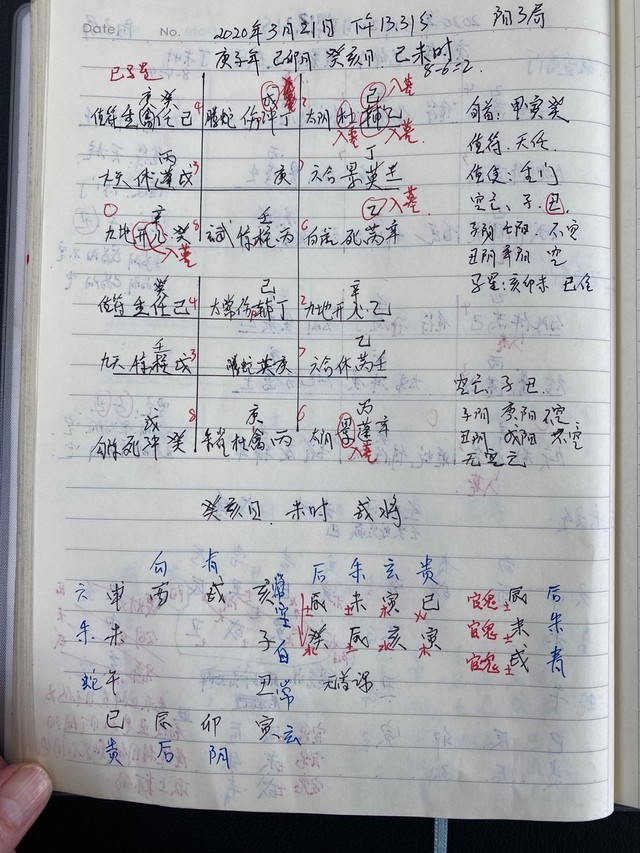 Date No. 2020年3月21日 下午13.31分 阳3局
庚子年 己卯月 癸亥日 己未时
8-6=2
庚癸 戊 己 入墓
值符 任己 4 腾蛇 伤冲丁 2 太阴 杜辅乙
入墓 入墓
旬首:甲寅癸
丙 丁
九天 休蓬戊 3 庚 7 六合 景英壬
值符.天任
值使:生门
0 辛 壬 乙 入墓
九地 开心癸 8 玄武 惊柱丙 6 白虎 死芮辛
入墓
空亡、子.丑.
子阴 不空
丑阴 辛阴 空
子星:亥卯未
癸 己 辛
值符 生任己 4 太常 伤辅丁 2 九地 开心乙
壬 乙
九天 惊柱戊 3 腾蛇 英庚 7 六合 休芮壬
空亡.子丑.
戊 庚 丙
勾陈 死冲癸 8 朱雀 杜禽丙 6 太阴 景蓬辛
入墓
子阴 庚阳 不空
丑阴 戊阳 不空
无空亡
癸亥日.未时 戌将
勾 青 后 朱 玄 贵
六 申 酉 戌 亥 空 辰土 未土 寅木 巳火 官鬼土 辰 后
朱 未 子 白 癸水 辰土 亥水 寅木 官鬼土 未 朱
官鬼土 戌 青
蛇 午 丑 常 元首课
巳 辰 卯 寅 玄
贵 后 阴